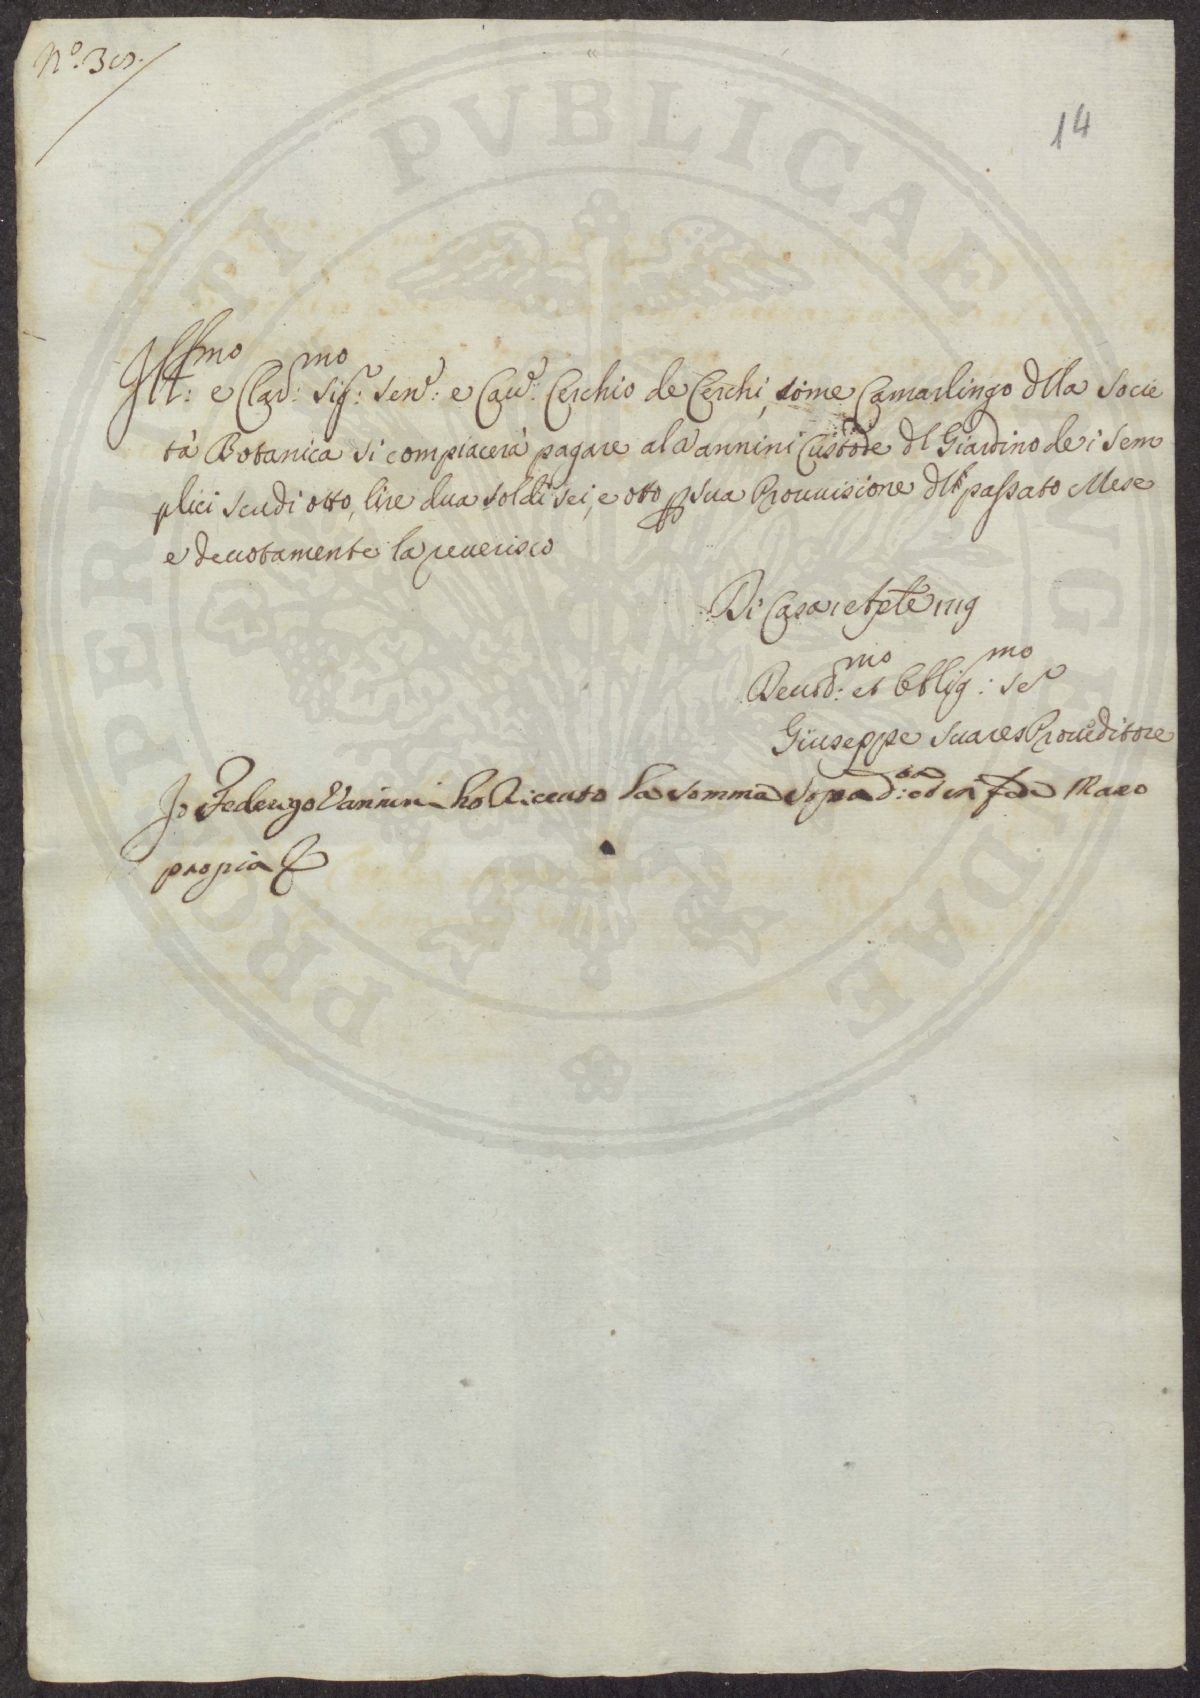 N.º 30.
14
Ill:mo e Clar:mo Sig:r Sen:e e Cau:e Cerchio de Cerchi, come Camarlingo dlla Socie
tà Botanica si compiacerà pagare al Vannini Custode dl Giardino de i Sem
plici scudi otto, lire dua soldi sei, e otto p sua Prouuisione dl passato Mese
e deuotamente la reuerisco
Di Casa
Deuot:mo et Oblig:mo Se.e
Giuseppe Suares Prouueditore
Io Federigo Vannini ho Riceuto la somma sopa d:a ed in fede Mano
propia
PROSPERITATI PVBLICAE AVGENDAE